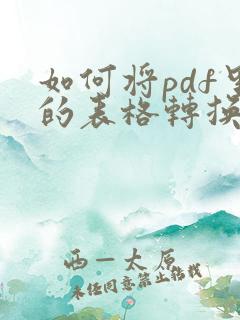 如何将pdf里
的表格轉换
西一太原
未经同意禁止转载